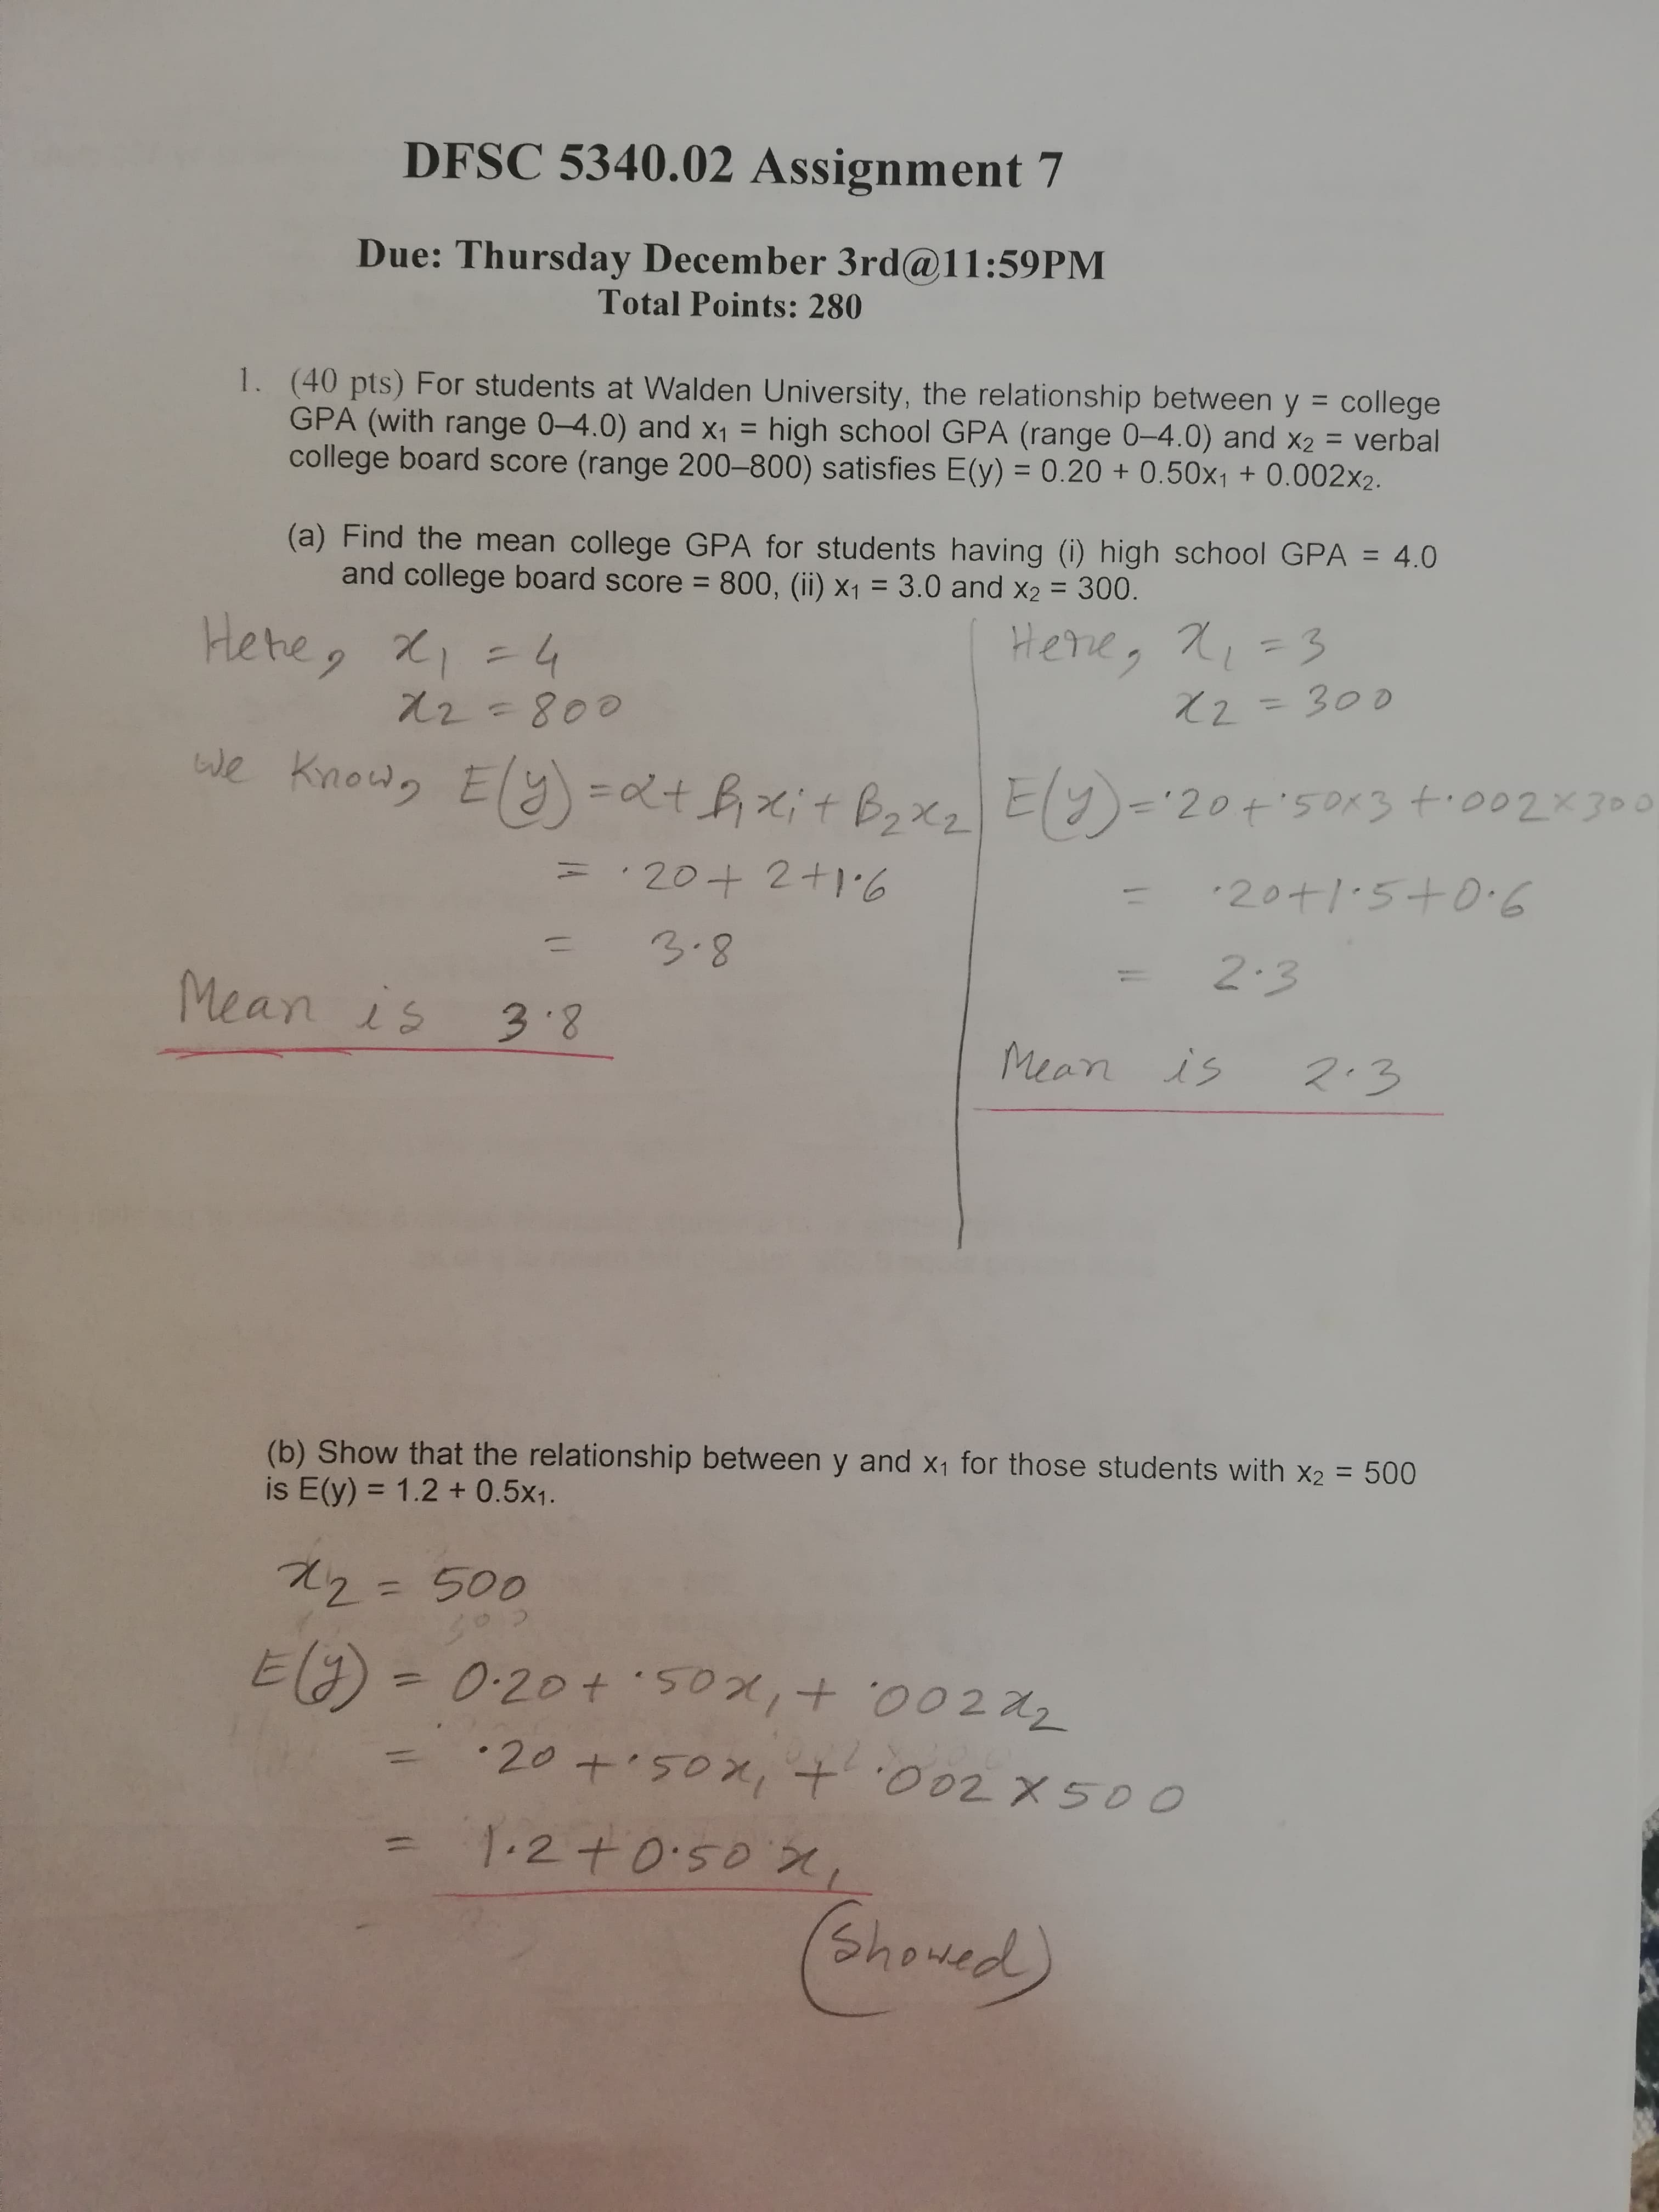 DFSC 5340.02 Assignment 7
Due: Thursday December 3rd@11:59PM
Total Points: 280
1. (40 pts) For students at Walden University, the relationship between y = college
GPA (with range 0–4.0) and x₁ = high school GPA (range 0–4.0) and x₂ = verbal
college board score (range 200–800) satisfies E(y) = 0.20 + 0.50x₁ + 0.002x₂.
(a) Find the mean college GPA for students having (i) high school GPA = 4.0
and college board score = 800, (ii) x₁ = 3.0 and x₂ = 300.
Here, x₁ = 4
x₂ = 800
We know, E(y) = α + β₁x₁ + β₂x₂
= .20 + 2 + 1.6
= 3.8
Mean is 3.8
Here, x₁ = 3
x₂ = 300
E(y) = .20 + .50×3 + .002×300
= .20 + 1.5 + 0.6
= 2.3
Mean is 2.3
(b) Show that the relationship between y and x₁ for those students with x₂ = 500
is E(y) = 1.2 + 0.5x₁.
x₂ = 500
E(y) = 0.20 + .50x₁ + .002x₂
= .20 + .50x₁ + .002 × 500
= 1.2 + 0.50x₁
(Showed)